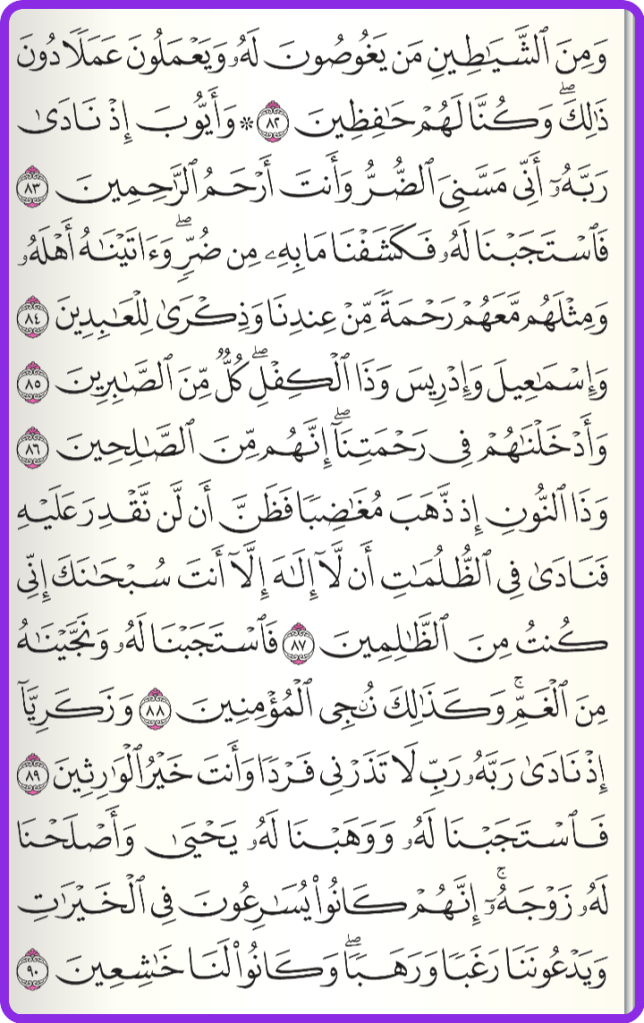 وَمِنَ ٱلشَّيَـٰطِينِ مَن يَغُوصُونَ لَهُۥ وَيَعْمَلُونَ عَمَلًا دُونَ
ذَٰلِكَ ۖ وَكُنَّا لَهُمْ حَـٰفِظِينَ ٨٢ ۞ وَأَيُّوبَ إِذْ نَادَىٰ
رَبَّهُۥٓ أَنِّى مَسَّنِىَ ٱلضُّرُّ وَأَنتَ أَرْحَمُ ٱلرَّٰحِمِينَ ٨٣
فَٱسْتَجَبْنَا لَهُۥ فَكَشَفْنَا مَا بِهِۦ مِن ضُرٍّ ۖ وَءَاتَيْنَـٰهُ أَهْلَهُۥ
وَمِثْلَهُم مَّعَهُمْ رَحْمَةً مِّنْ عِندِنَا وَذِكْرَىٰ لِلْعَـٰبِدِينَ ٨٤
وَإِسْمَـٰعِيلَ وَإِدْرِيسَ وَذَا ٱلْكِفْلِ ۖ كُلٌّ مِّنَ ٱلصَّـٰبِرِينَ ٨٥
وَأَدْخَلْنَـٰهُمْ فِى رَحْمَتِنَآ ۖ إِنَّهُم مِّنَ ٱلصَّـٰلِحِينَ ٨٦
وَذَا ٱلنُّونِ إِذ ذَّهَبَ مُغَـٰضِبًا فَظَنَّ أَن لَّن نَّقْدِرَ عَلَيْهِ
فَنَادَىٰ فِى ٱلظُّلُمَـٰتِ أَن لَّآ إِلَـٰهَ إِلَّآ أَنتَ سُبْحَـٰنَكَ إِنِّى
كُنتُ مِنَ ٱلظَّـٰلِمِينَ ٨٧ فَٱسْتَجَبْنَا لَهُۥ وَنَجَّيْنَـٰهُ
مِنَ ٱلْغَمِّ ۚ وَكَذَٰلِكَ نُـۨجِى ٱلْمُؤْمِنِينَ ٨٨ وَزَكَرِيَّآ
إِذْ نَادَىٰ رَبَّهُۥ رَبِّ لَا تَذَرْنِى فَرْدًا وَأَنتَ خَيْرُ ٱلْوَٰرِثِينَ ٨٩
فَٱسْتَجَبْنَا لَهُۥ وَوَهَبْنَا لَهُۥ يَحْيَىٰ وَأَصْلَحْنَا
لَهُۥ زَوْجَهُۥٓ ۚ إِنَّهُمْ كَانُوا۟ يُسَـٰرِعُونَ فِى ٱلْخَيْرَٰتِ
وَيَدْعُونَنَا رَغَبًا وَرَهَبًا ۖ وَكَانُوا۟ لَنَا خَـٰشِعِينَ ٩٠